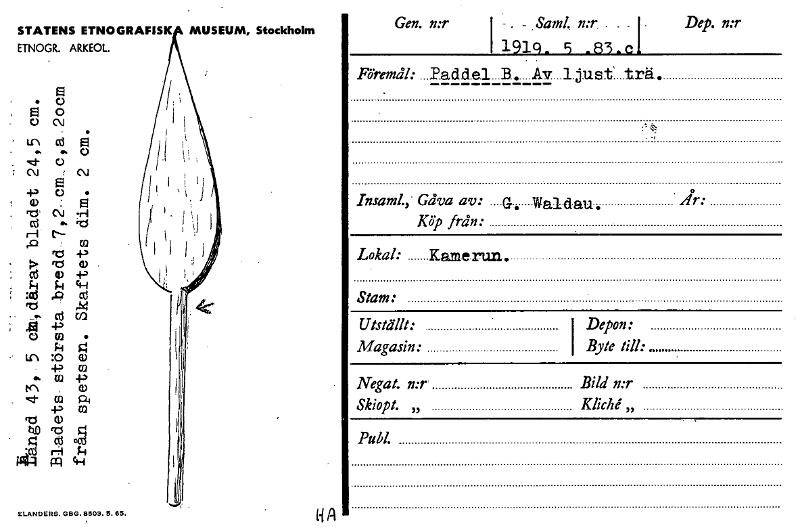 STATENS ETNOGRAFISKA MUSEUM, Stockholm
ETNOGR. ARKEOL.
Längd 43, 5 cm, därav bladet 24,5 cm.
Bladets största bredd 7,2 cm c,a 20cm
från spetsen. Skaftets dim. 2 cm.
ELANDERS. GBG. 8503. 5. 65.
HA
Gen. n:r Saml. n:r Dep. n:r
1919. 5 .83.c.
Föremål: Paddel B. Av ljust trä.
Insaml., Gåva av: G. Waldau. År:
Köp från:
Lokal: Kamerun.
Stam:
Utställt: Depon:
Magasin: Byte till:
Negat. n:r Bild n:r
Skiopt. „ Kliché „
Publ.